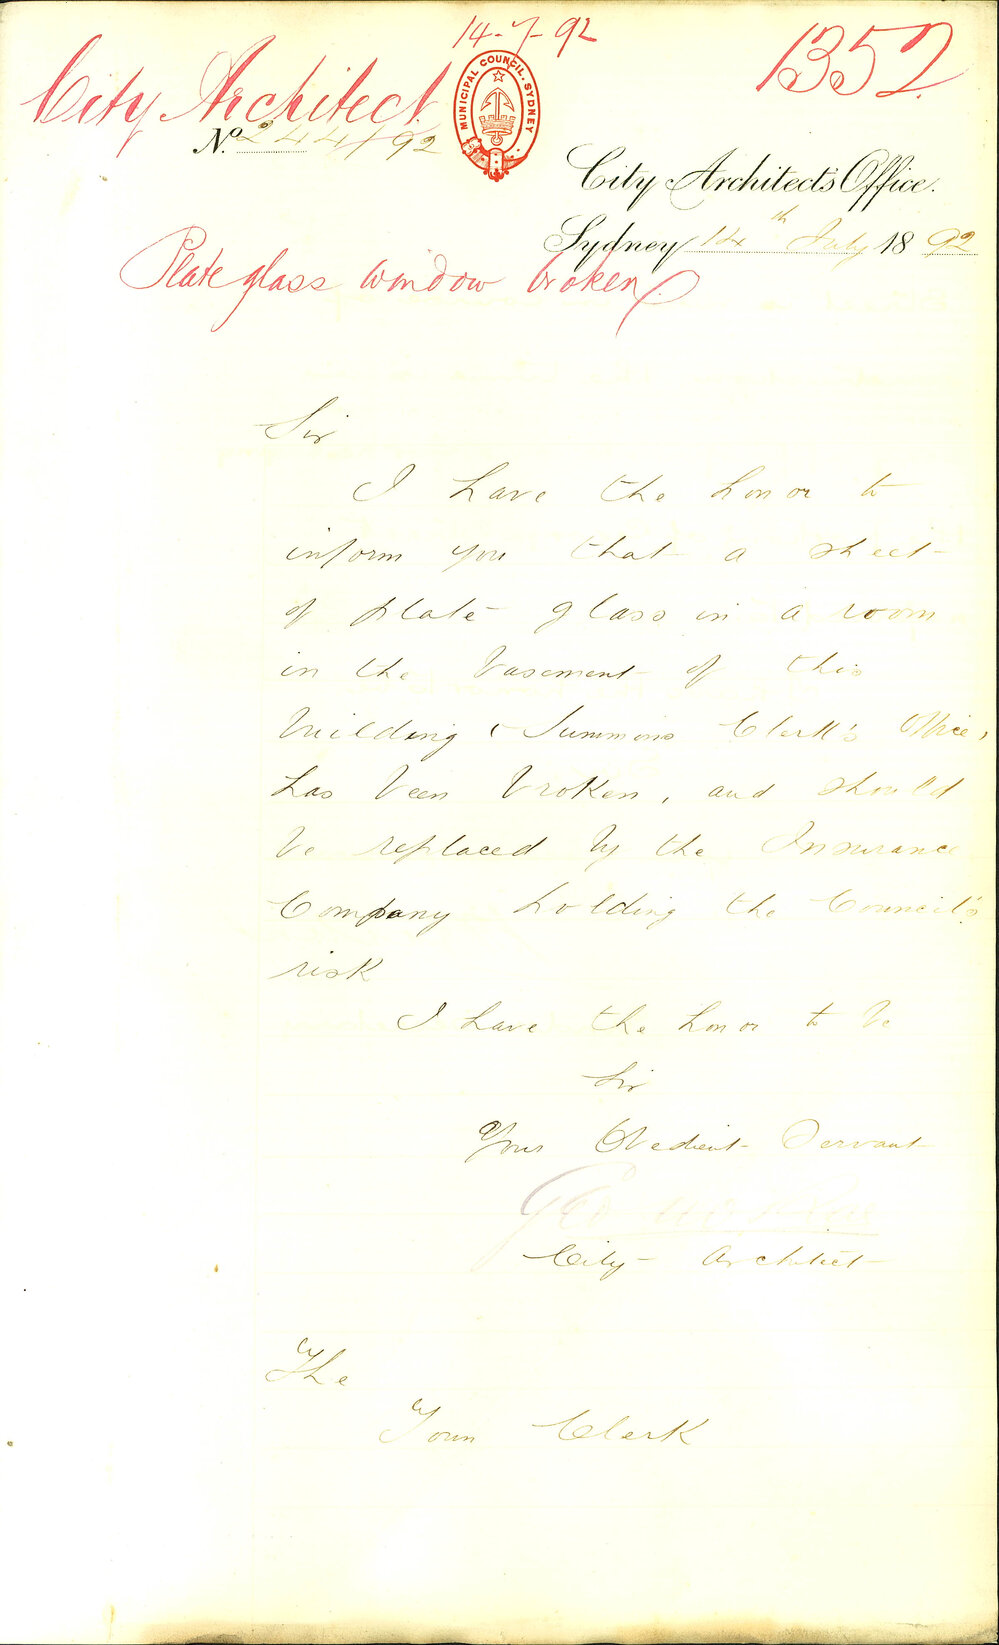 14-7-92
1352
City Architect
MUNICIPAL COUNCIL. SYDNEY
No. 244/92
City Architect's Office.
Sydney 14th July 1892
Plate glass window broken.
Sir
I have the honor to
inform you that a sheet
of plate glass in a room
in the basement of this
building (Summons Clerk's Office)
has been broken, and should
be replaced by the Insurance
Company holding the Council's
risk
I have the honor to be
Sir
Your Obedient Servant
Geo
City Architect
The
Town Clerk